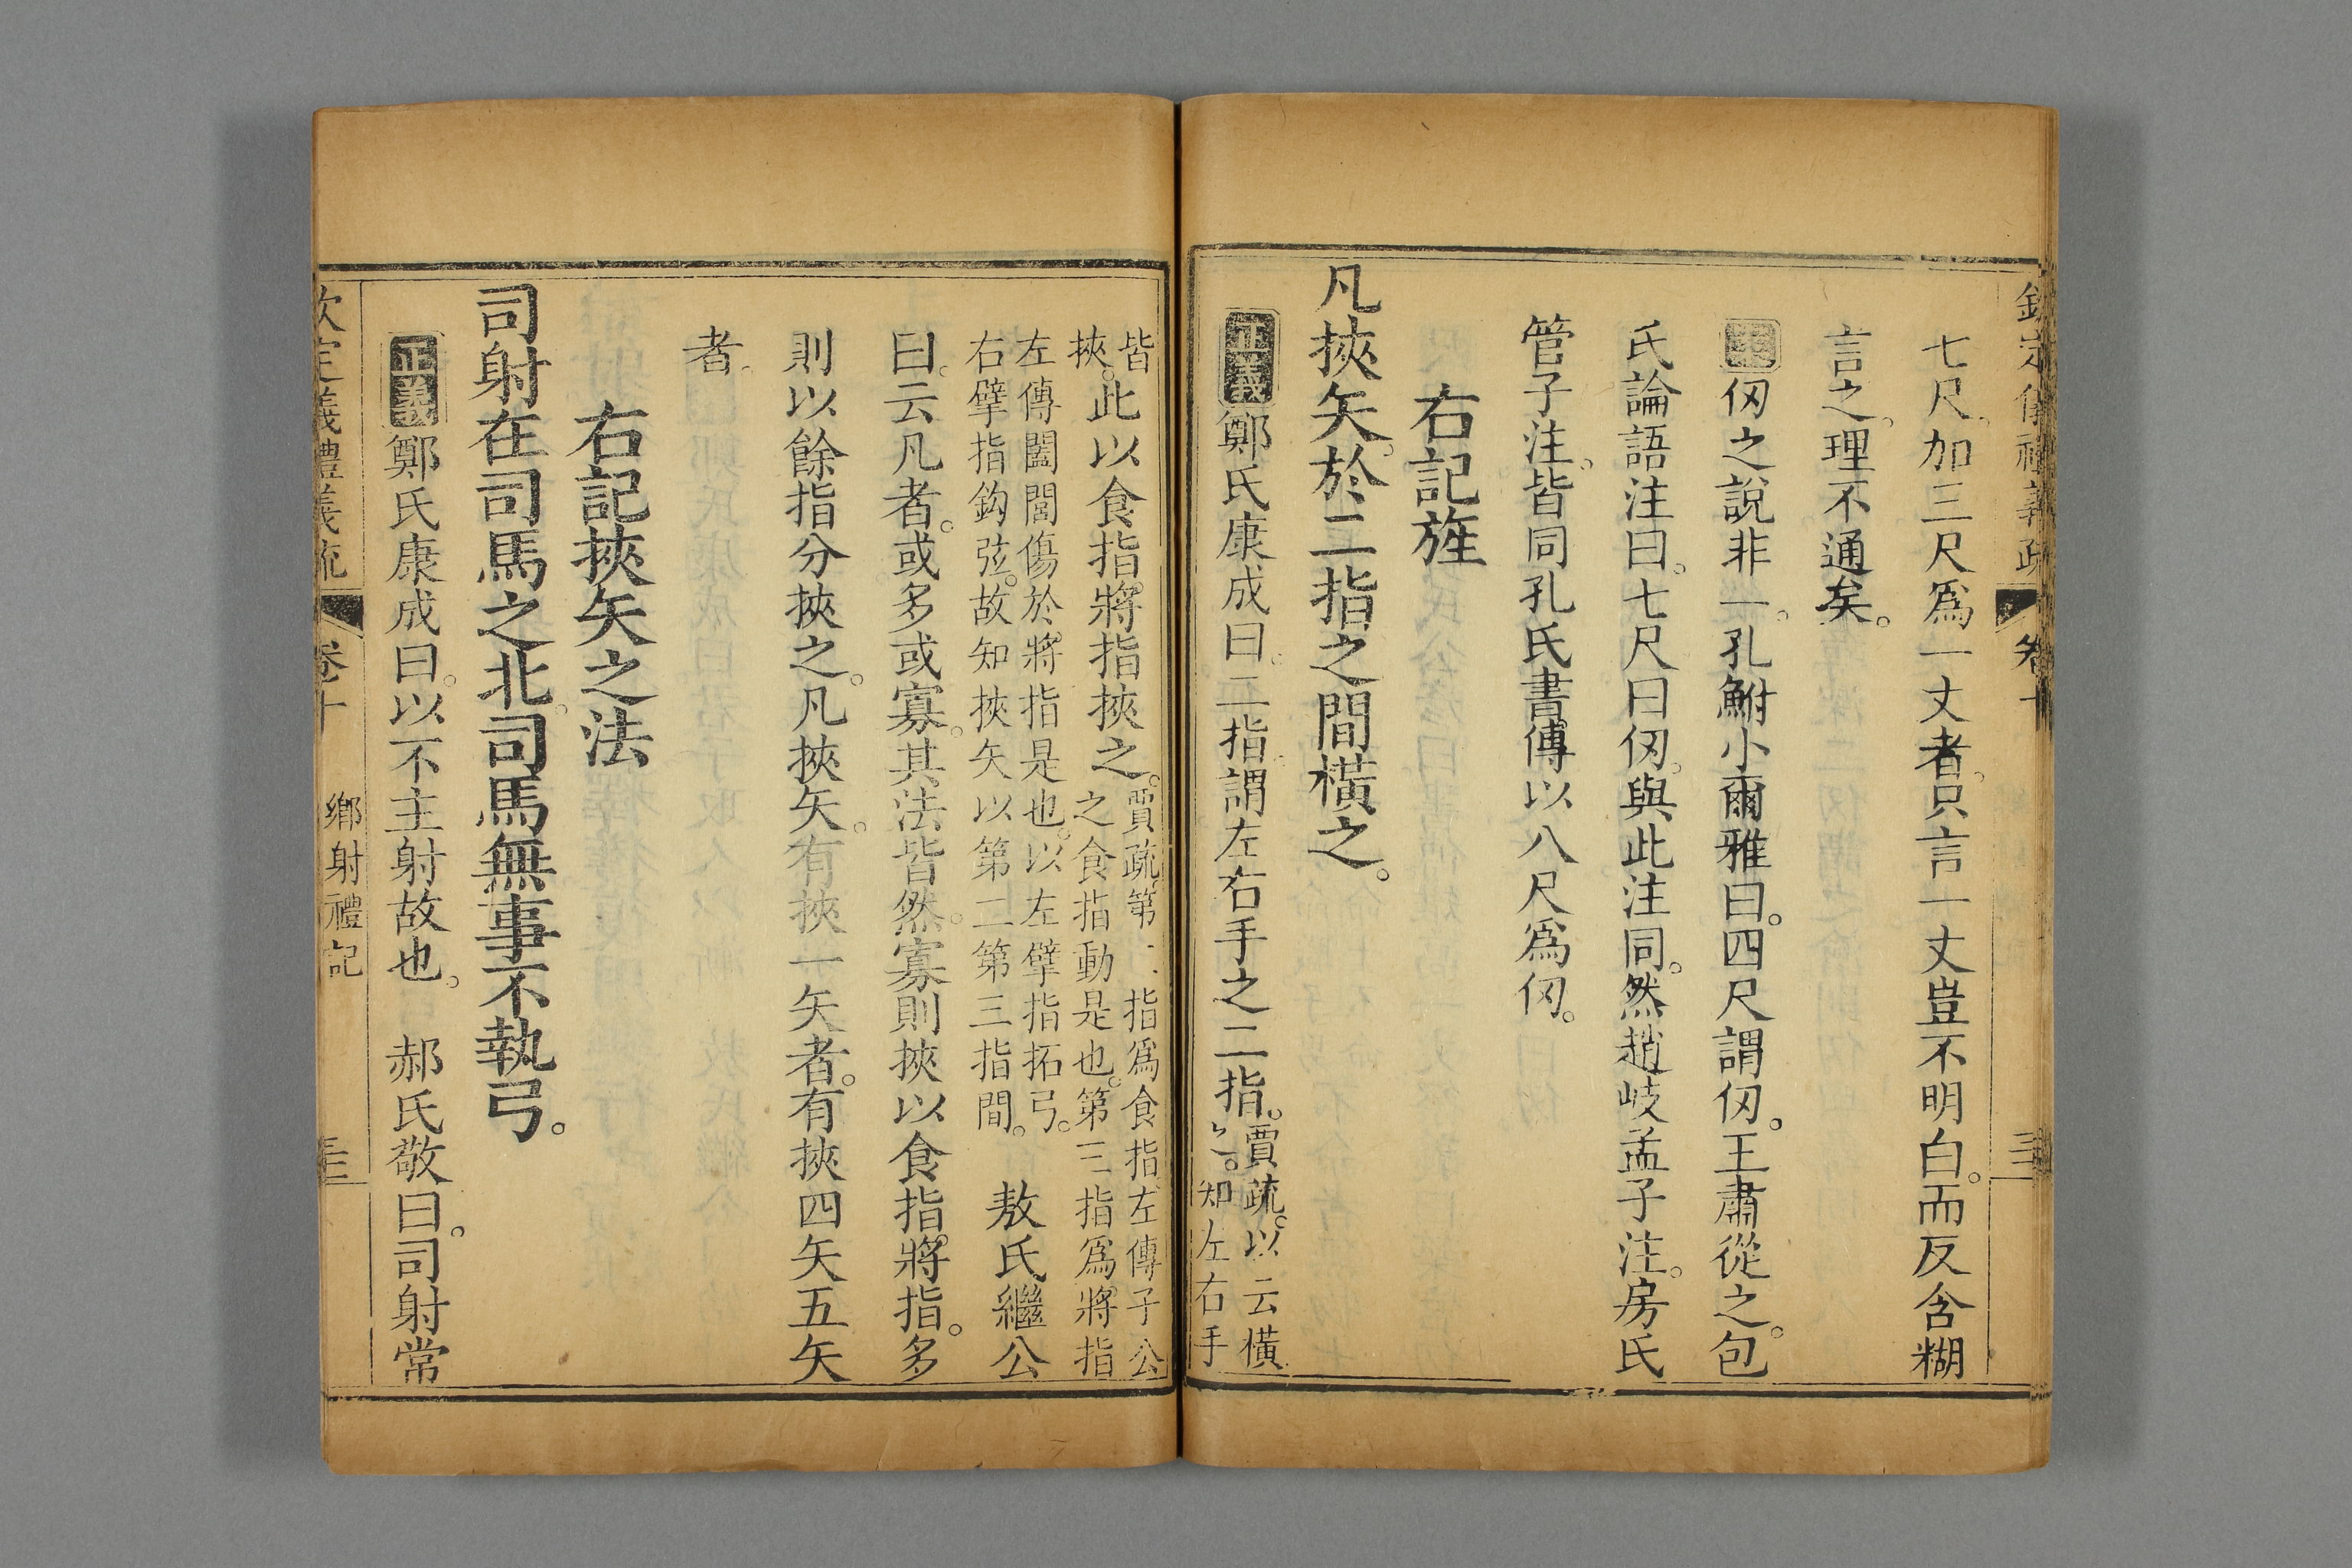 欽定儀禮義疏 卷十 三
七尺加三尺爲一丈者只言一丈豈不明白。而反含糊
言之。理不通矣。
案仞之說非一。孔鮒小爾雅曰。四尺謂仞。王肅從之。包
氏論語注曰。七尺曰仞。與此注同。然趙岐孟子注。房氏
管子注。皆同孔氏書傳以八尺爲仞。
右記旌
凡挾矢。於二指之間橫之。
正義鄭氏康成曰。二指謂左右手之二指。賈疏。以云橫
之。知左右手
皆
挾。此以食指將指挾之。賈疏。第二指爲食指。左傳子公
之食指動是也。第三指爲將指
左傳闔閭傷於將指是也。以左擘指拓弓。
右擘指鈎弦。故知挾矢以第二第三指間。 敖氏繼公
曰。云凡者。或多或寡。其法皆然。寡則挾以食指將指。多
則以餘指分挾之。凡挾矢。有挾一矢者。有挾四矢五矢
者。
右記挾矢之法
司射在司馬之北。司馬無事不執弓。
正義鄭氏康成曰。以不主射故也。 郝氏敬曰。司射常
欽定義禮義疏 卷十 鄉射禮記